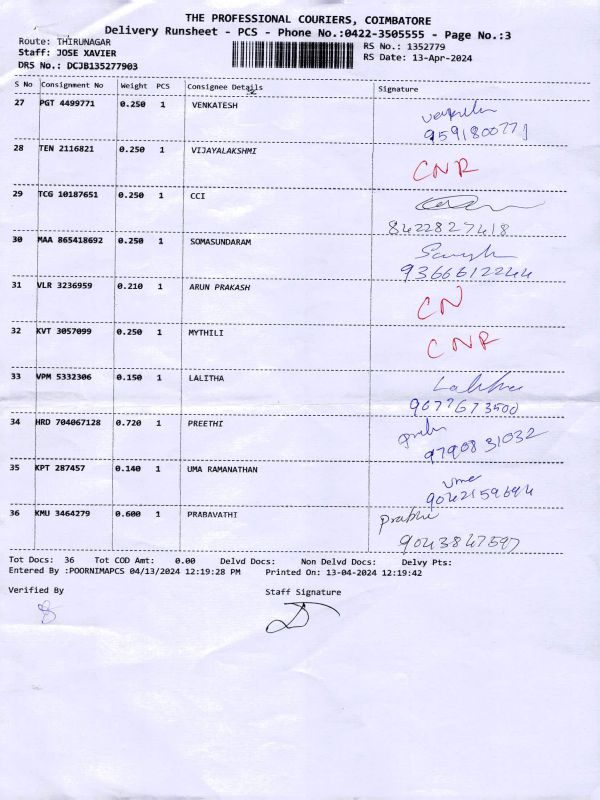 THE PROFESSIONAL COURIERS, COIMBATORE
Delivery Runsheet - PCS - Phone No.:0422-3505555 - Page No.:3
Route: THIRUNAGAR RS No.: 1352779
Staff: JOSE XAVIER RS Date: 13-Apr-2024
DRS No.: DCJB135277903
S No Consignment No Weight PCS Consignee Details Signature
27 PGT 4499771 0.250 1 VENKATESH
28 TEN 2116821 0.250 1 VIJAYALAKSHMI CNR
29 TCG 10187651 0.250 1 CCI
8422827418
30 MAA 865418692 0.250 1 SOMASUNDARAM
9366612244
31 VLR 3236959 0.210 1 ARUN PRAKASH CN
32 KVT 3057099 0.250 1 MYTHILI CNR
33 VPM 5332306 0.150 1 LALITHA Lalitha
9677673500
34 HRD 704067128 0.720 1 PREETHI
9790831032
35 KPT 287457 0.140 1 UMA RAMANATHAN uma
9042159694
36 KMU 3464279 0.600 1 PRABAVATHI prabhu
9043847597
Tot Docs: 36 Tot COD Amt: 0.00 Delvd Docs: Non Delvd Docs: Delvy Pts:
Entered By :POORNIMAPCS 04/13/2024 12:19:28 PM Printed On: 13-04-2024 12:19:42
Verified By Staff Signature